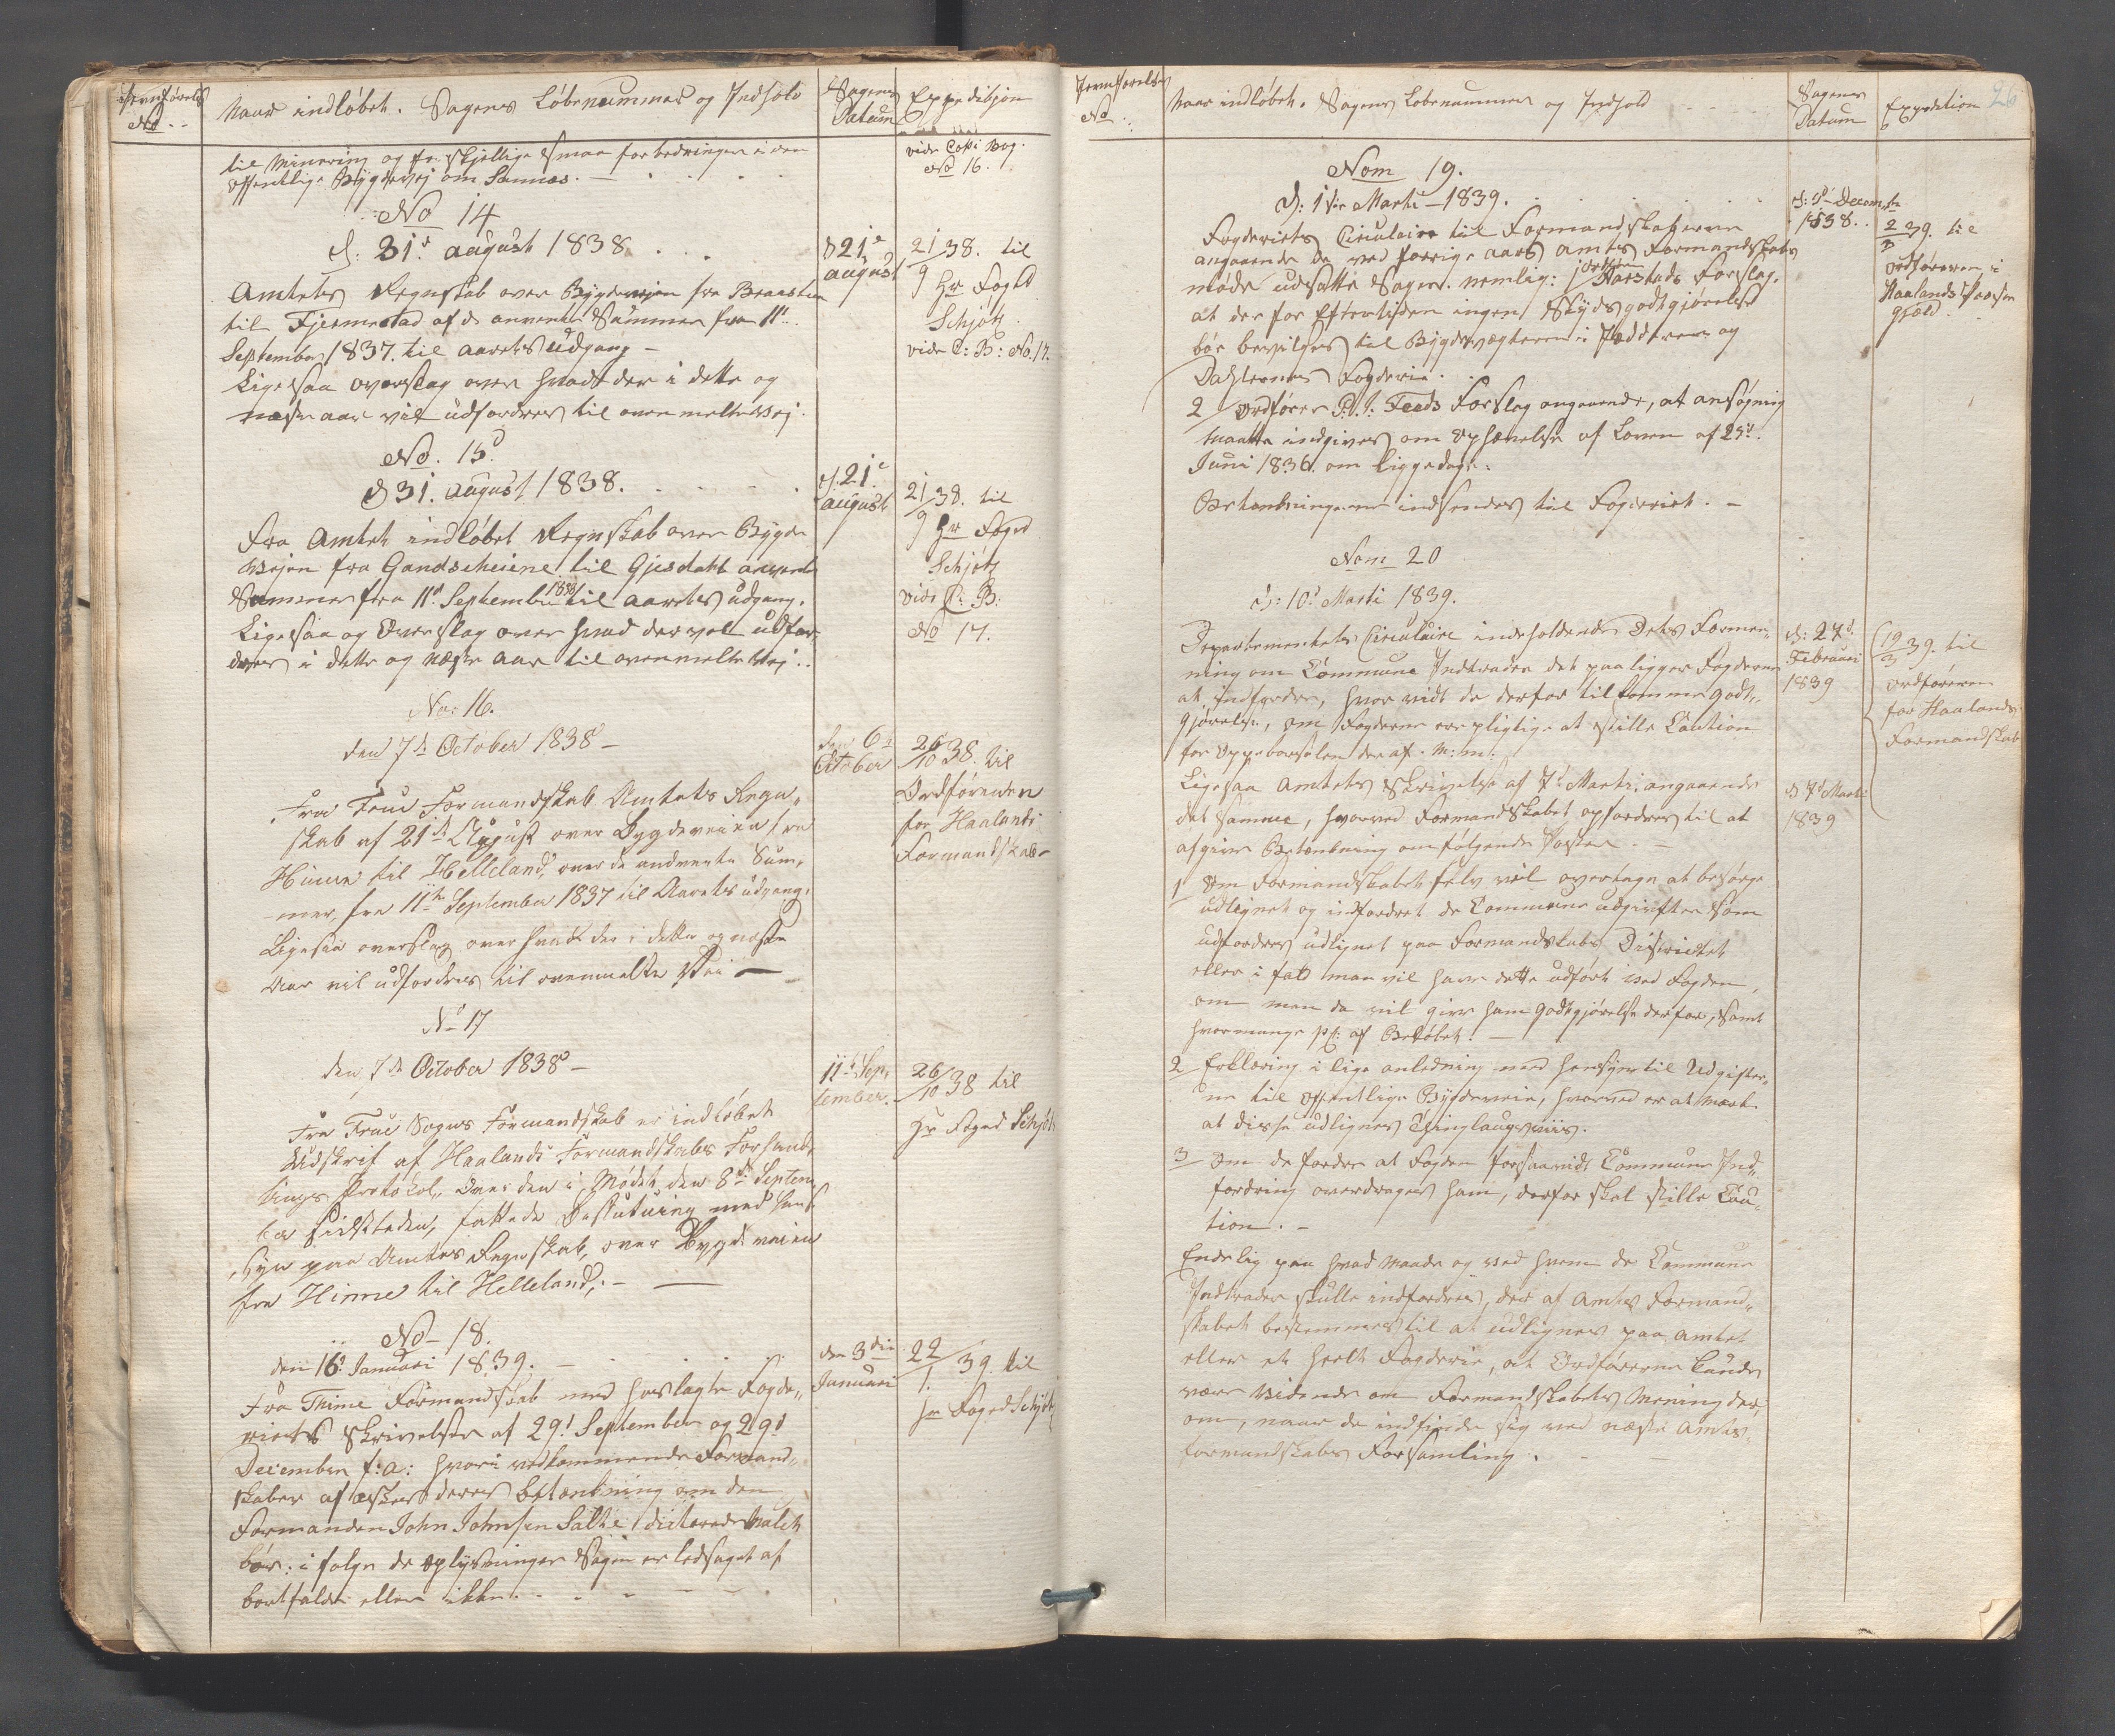 Jevnførels
No
Naar indløbet. Sagens Løbenummer og Indhold
Sagens
Datum
Expedition
til Minering og forskjellige Smaa forbedringer i den
offentlige Bÿgdevej om Sannæs.
vide Copi Bog.
No 16.
No 14
d: 31t august 1838.
Amtets Regnskab over Bÿgdevejen fra Braasten
til Fjermestad af de anvendte Summer fra 11t
September 1837. til aarets Udgang -
Ligesaa overslag over hvad der i dette og
næste aar vil udfordres til ovenmeldte Vej.
d 21t
august
21/9 38. til
Hr Foged
Schjøtz
vide C: B: No. 17.
No. 15
d 31. august 1838.
Fra Amtet indløbet Regnskab over Bÿgde
Vejen fra Gandscheiene til Gjesdahl anvendte
Summer fra 11t September 1837 til aarets udgang.
Ligesaa og Overslag over hvad der vel udfor-
dres i dette og næste aar til ovenmeldte Vej..
d. 21t
august
21/9 38. til
Hr Foged
Schjøtz
vide C: B:
No 17.
No: 16.
den 7de October 1838 -
Fra Time Formandskab Amtets Regn-
skab af 21de August over Bygdeveien fra
Hinne til Helleland, over de andvente Sum-
mer, fra 11te September 1837 til Aarets udgang,
Ligesaa overslag over hvad der i dette og næste
Aar vil udfordres til ovenmeldte Vei -
den 6te
October
26/10 38. til
Ordføreren
for Haalands
Formandskab
No 17
den 7de October 1838 -
Fra Time Sogns Formandskab er indløbet
Udskrif af Haalands Formandskabs Forhand-
lings Protokol, Over den i Mødet den 8de Septem-
ber sidstleden, fattede Beslutning med Hen-
syn paa Amtes Regnskab, over Bygdeveien
fra Hinne til Helleland; -
11te Sep-
tember.
26/10 38 til
Hr Foged Schjøtz
No 18.
den 16t Januari 1839.
Fra Thime Formandskab med heslagte Fogde-
riets Skrivelser af 29t September og 29t
December f: a: hvori vedkommende Formand-
skaber af æskes deres betænkning om den
Formanden John Johnsen Salte dicterede Mulct
bør: i følge de oplysninger Sagen er ledsaget af
bortfalde eller ikke.
den 3die
Januari
22/1 39. til
Hr Foged Schjøtz
Jevnførelses
No
Naar indløbet. Sagens Løbenummer og Indhold
Sagens
Datum
Expedition
26
Nom 19.
d: 1ste Marti 1839.
Fogderiets Circulaire til Formandskaberne
angaaende de ved forrige aars amts Formandskabs
møde udsatte Sager. nemlig: 1 Ordfører Harestads Forslag.
at der for Eftertiden ingen Skÿdsgodtgjørelse
bør bevilges til Bÿgdevægterne i Jædderen og
Dahlernes Fogderie.
2 Ordfører P. J: Feeds Forslag angaaende, at ansøgning
maatte indgives om Ophævelse af Loven af 25t
Juni 1836. om Liggedage.
Betænkningerne indsendes til Fogderiet. -
Decembr
1838.
2/3 39. til
ordføreren i
Haalands Præste
gjæld.
Nom 20
d: 10t Marti 1839.
Departementets Circulaire indeholdende Dets Formee-
ning om Commune Indtrader det paa ligger Fogderne
at indfordre, hvor vidt de derfor tilkomme godt-
gjørelse, om Fogderne ere pligtige at stille Caution
for Oppebørselen deraf. m: m:
Ligesaa Amtets Skrivelse af 7t Marti, angaaende
det samme, hvorved Formandskabet opfordres til at
afgive Betænkning om følgende Poster. -
d: 27t
Februari
1839
19/3 39. til
ordføreren
for Haalands
Formandskab
d 7t Marti
1839
1 Om Formandskabet selv vil overtage at besørge
udlignet og indfordret de Commune udgivfter som
udfordres udlignet paa Formandskabs Districtet
eller i fald man vil have dette udført ved Fogden,
om man da vil give ham godtgjørelse derfor, samt
hvormange pC: af Beløbet. -
2 Erklæring i lige anledning med hensÿn til Udgifter-
ne til offentlige Bÿgdeveie, hvorved er at mærke
at disse udlignes Thinglaugsviis.
3 Om de fordre at Fogden forsaavidt Commune Ind-
fordring overdrages ham, derfor skal stille Cau-
tion. -
Endelig paa hvad maade og ved hvem de Commune
Indtrader skulle indfordres, der af Amts Formand-
skabet bestemmes til at udlignes paa amtet
eller et heelt Fogderie, at Ordførerne kunde
være vidende om Formandskabets Mening der-
om, naar de indfinde sig ved næste Amts-
formandskabs Forsamling.